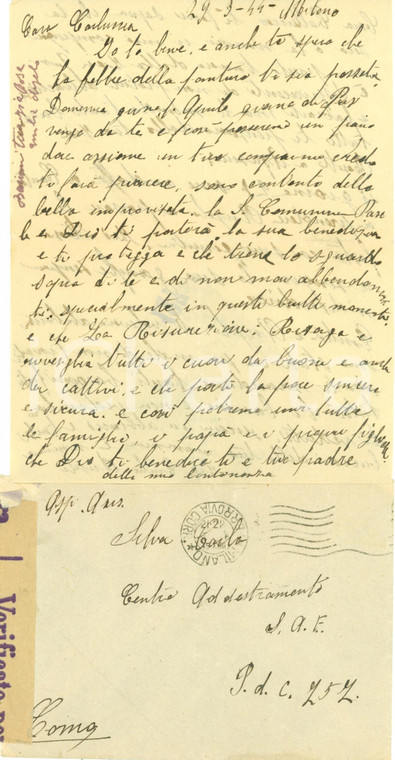 29-3-45 Milano
Caro Carluccio
Io sto bene, e anche te spero che
la febbre della puntura ti sia passata.
Domenica giorno 1° Aprile giorno di Pas
vengo da te e così passeremo un paio
d'ore assieme un tuo compagno credo
ti farà piacere, sono contento della
bella improvisata. la S. Comunione Pasc
le e Dio ti porterà la sua benedizion
e ti protegga e che tiene lo sguardo
sopra di te e di non mai abbandonar
ti, specialmente in questi brutti momenti
e che La Risurezione: Risorga e
risveglia tutti i cuori da buoni e anche
dei cattivi, e che porti la pace sincera
e sicura. e così potremo unir tutte
le famiglie, i papà e i propri figli
che Dio ti benedice te e tuo padre
della mia lontananza
Asp. Aus.
Silva Carlo
Centro Addestramento
S. A. F.
P. d. C. 757
Como
MILANO
FERROVIA CORR
Verificato per